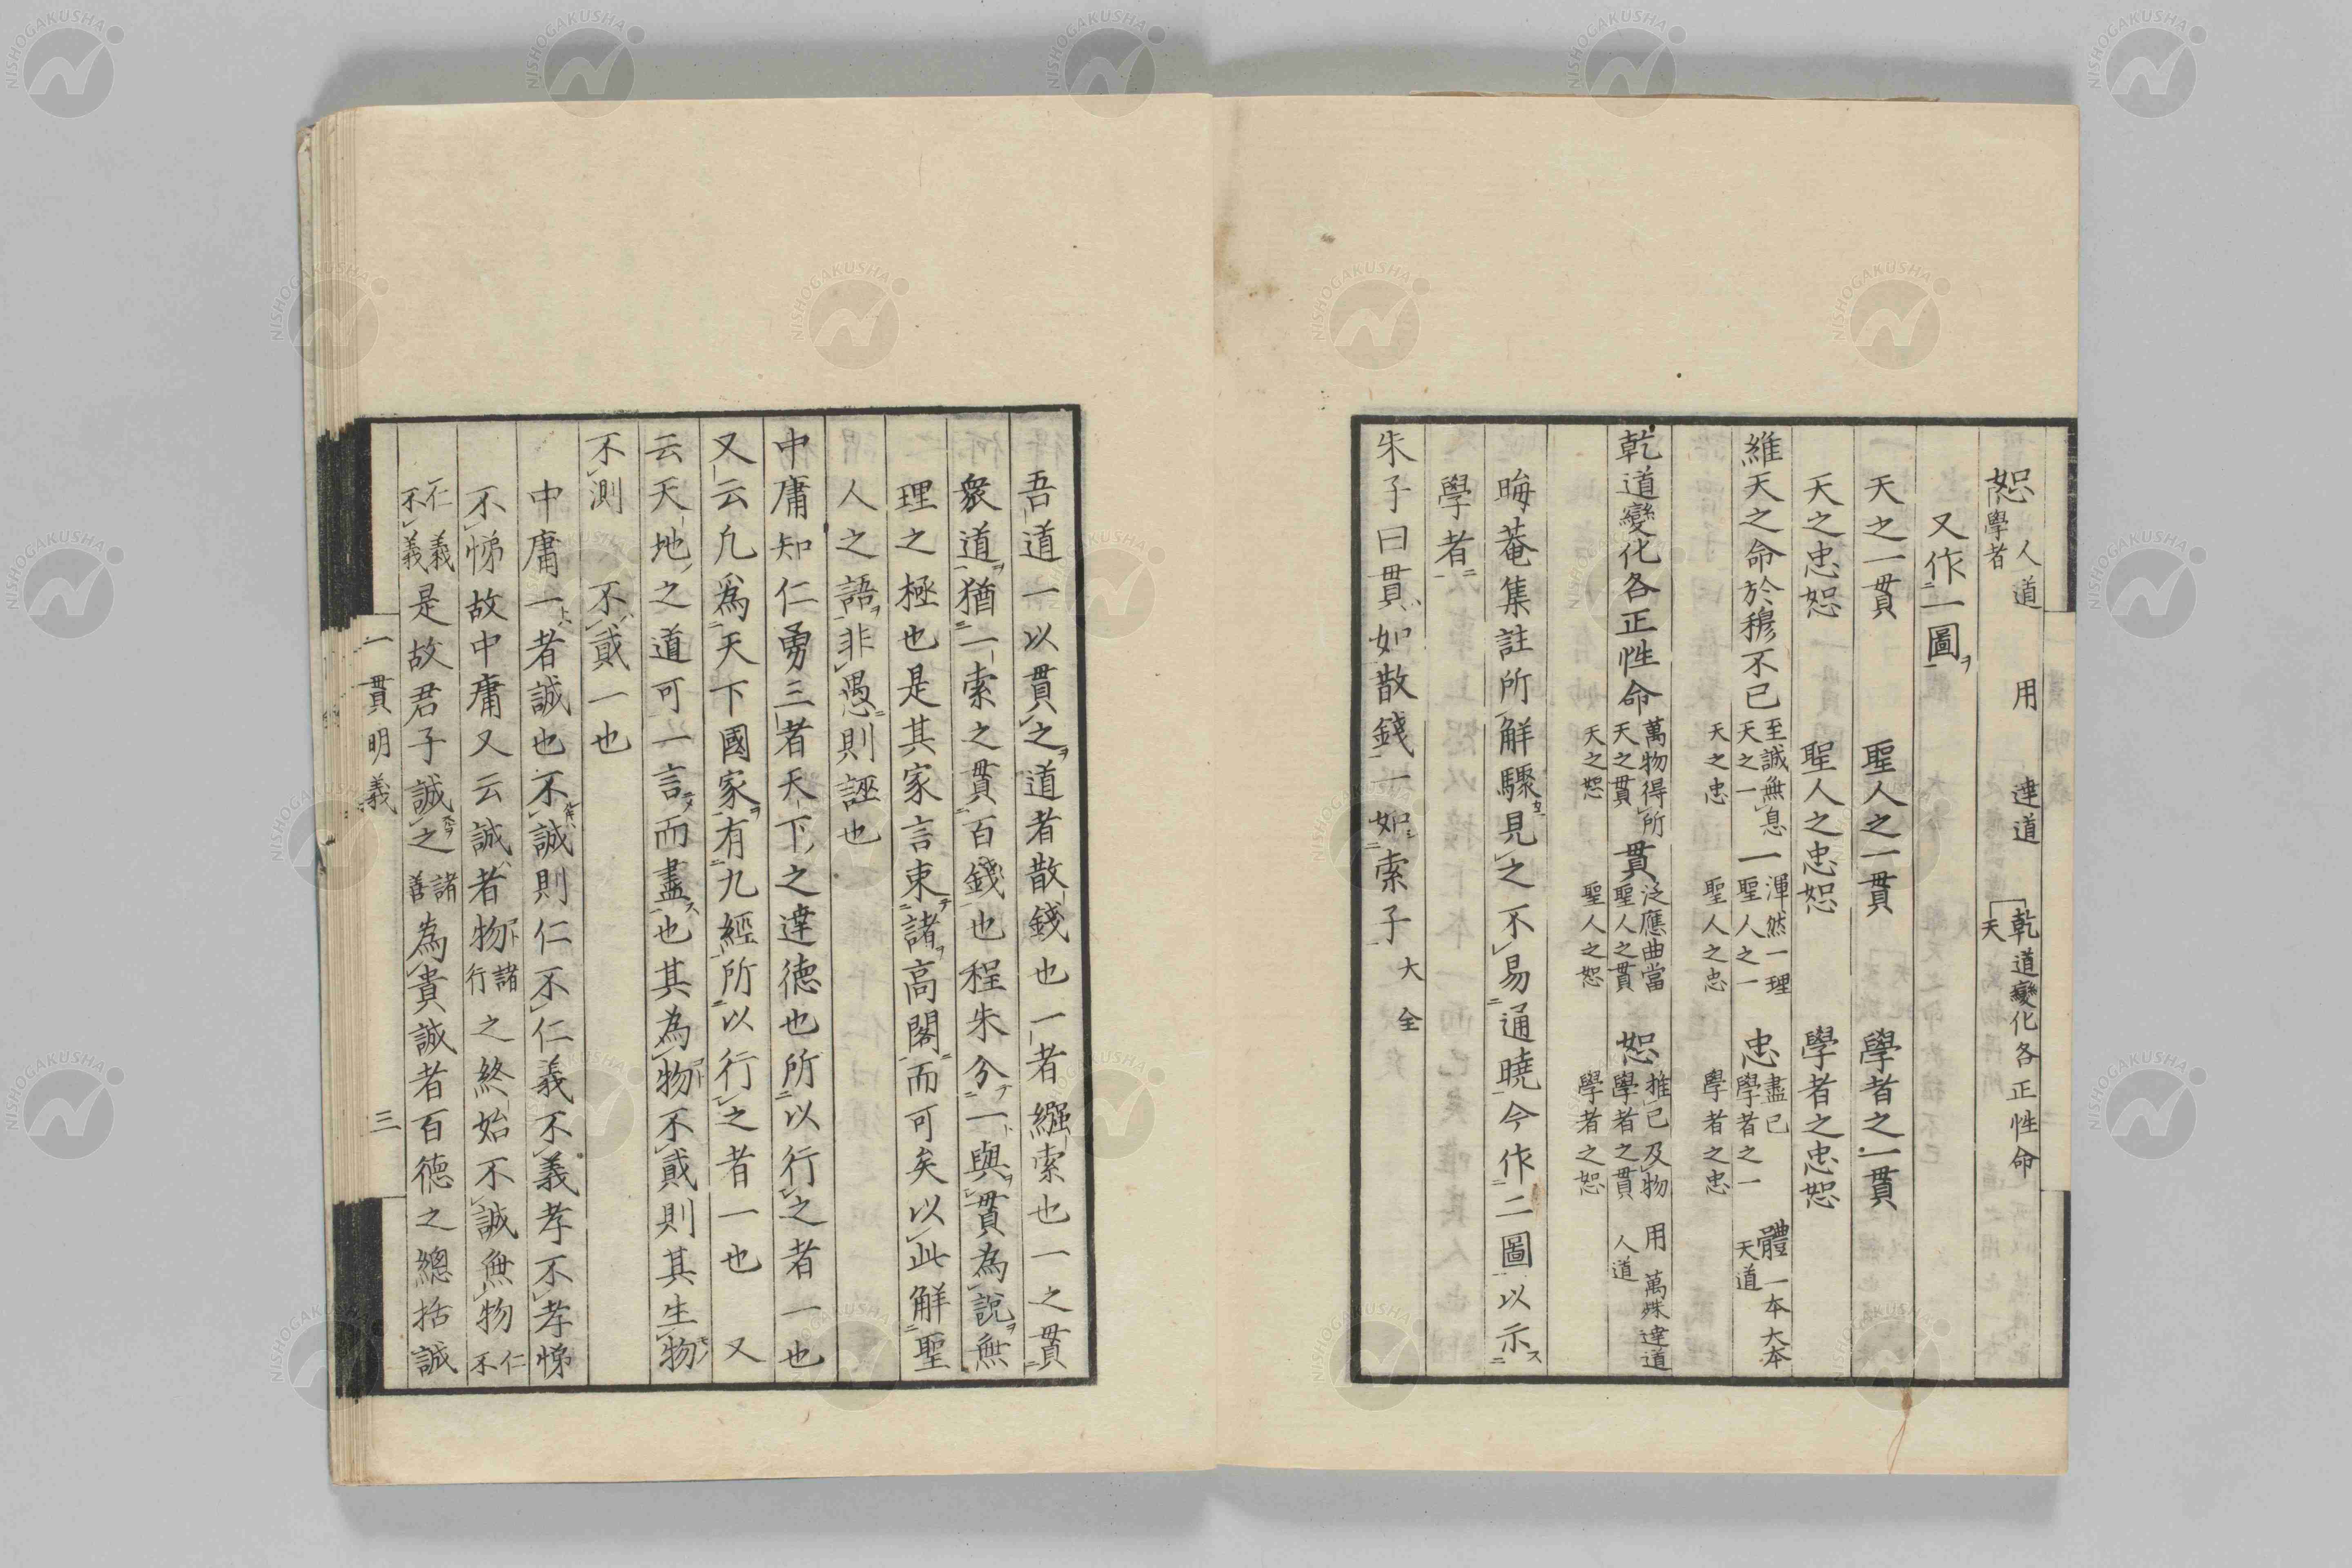 恕 人道 學者 用 達道 乾道變化各正性命 天
又作一圖ヲ
天之一貫 聖人之一貫 學者之一貫
天之忠恕 聖人之忠恕 學者之忠恕
維天之命於穆不已 至誠無息 天之一 一 渾然一理 聖人之一 忠 盡已 學者之一 體 一本大本 天道
天之忠 聖人之忠 學者之忠
乾道變化各正性命 萬物得所 天之貫 貫 泛應曲當 聖人之貫 恕 推已及物 學者之貫 用 萬殊達道 人道
天之恕 聖人之恕 學者之恕
晦菴集註所解驟見之不易通曉今作二圖以示
學者
朱子曰貫如散錢一如索子 大全
吾道一以貫之道者散錢也一者繦索也一之貫
衆道猶一索之貫百錢也程朱分一與貫為説無
理之極也是其家言束諸高閣而可矣以此解聖
人之語非愚則誣也
中庸知仁勇三者天下之達德也所以行之者一也
又云凡爲天下國家有九經所以行之者一也 又
云天地之道可一言而盡也其為物不貳則其生物
不測 不貳一也
中庸一者誠也不誠則仁不仁義不義孝不孝悌
不悌故中庸又云誠者物諸行之終始不誠無物仁不
仁義不義是故君子誠之諸善為貴誠者百德之總括誠
一貫明義 三
NISHOGAKUSHA